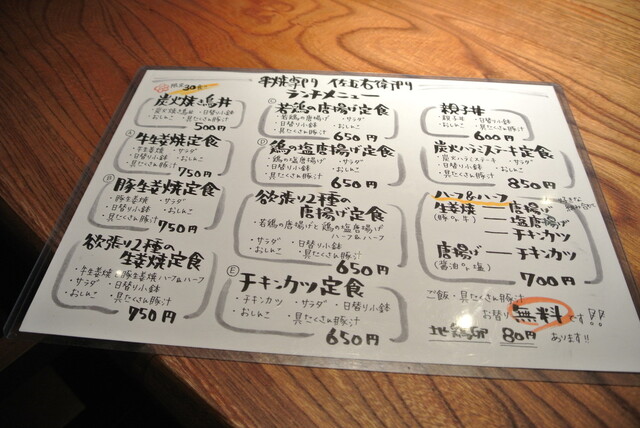 串焼専門 佐五右衛門
ランチメニュー
限定30食
炭火焼き鳥丼
・炭火焼き鳥丼 ・日替り小鉢
・おしんこ ・具だくさん豚汁
500円
A
牛生姜焼定食
・牛生姜焼 ・サラダ
・日替り小鉢 ・おしんこ
・具だくさん豚汁
750円
B
豚生姜焼定食
・豚生姜焼 ・サラダ
・日替り小鉢 ・おしんこ
・具だくさん豚汁
750円
欲張り2種の
生姜焼定食
・牛生姜焼・豚生姜焼ハーフ&ハーフ
・サラダ ・日替り小鉢
・おしんこ ・具だくさん豚汁
750円
C
若鶏の唐揚げ定食
・若鶏の唐揚げ ・サラダ
・日替り小鉢 ・おしんこ
・具だくさん豚汁
650円
D
鶏の塩唐揚げ定食
・鶏の塩唐揚げ ・サラダ
・日替り小鉢 ・おしんこ
・具だくさん豚汁
650円
欲張り2種の
唐揚げ定食
・若鶏の唐揚げと鶏の塩唐揚げ
ハーフ&ハーフ
・サラダ ・日替り小鉢
・おしんこ
・具だくさん豚汁
650円
E
チキンカツ定食
・チキンカツ ・サラダ ・日替り小鉢
・おしんこ ・具だくさん豚汁
650円
親子丼
・親子丼 ・日替り小鉢
・おしんこ ・具だくさん豚汁
600円
炭火ハラミステーキ定食
・炭火ハラミステーキ ・サラダ
・日替り小鉢 ・おしんこ
・具だくさん豚汁
850円
ハーフ&ハーフ
生姜焼 — 唐揚げ
(豚 or 牛) — 塩唐揚げ
— チキンカツ
唐揚げ — チキンカツ
(醤油 or 塩)
700円
ご飯・具だくさん豚汁
お替り 無料です!!
地鶏卵 80円 あります!!